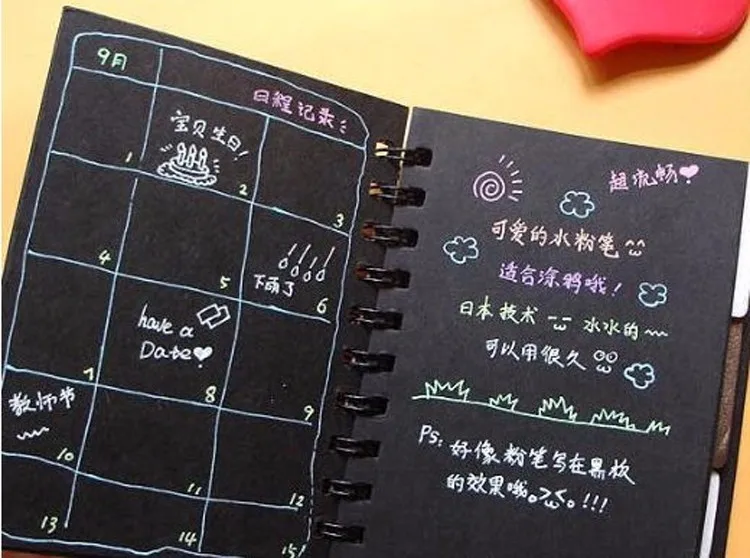 9月
日程记录
宝贝生日!
1
2
3
下雨了
4
5
6
have a
Date
7
8
9
教师节
10
11
12
13
14
15
超流畅
可爱的水粉笔
适合涂鸦哦!
日本技术 水水的
可以用很久
Ps: 好像粉笔写在黑板
的效果哦。。!!!